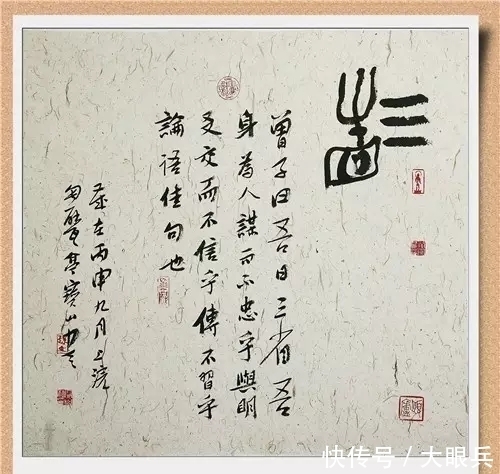 三省
曾子曰吾日三省吾
身為人謀而不忠乎與朋
友交而不信乎傳不習乎
論語佳句也
歲在丙申九月上浣
亭寶山
快传号 / 大眼兵